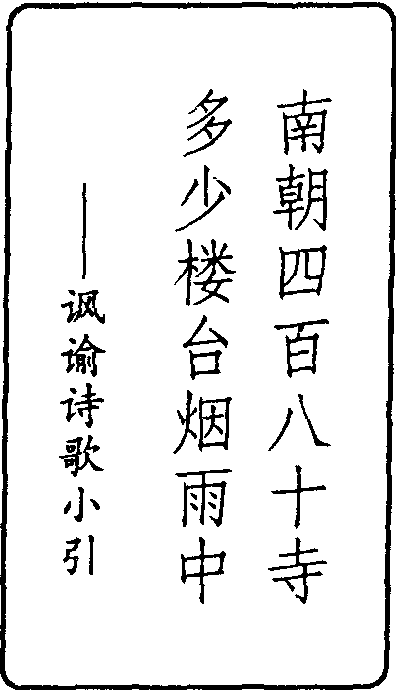 南朝四百八十寺
多少楼台烟雨中
——讽谕诗歌小引